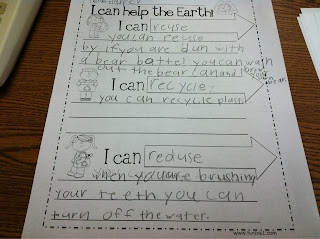 I can help the Earth!
I can reuse
you can reuse
by if you are dun with
a bear battel you can wash
out the bear can and
I can recycle
you can recycle plasti
I can reduse
when you are brushing
your teeth you can
turn off the water.
www.funinks.com